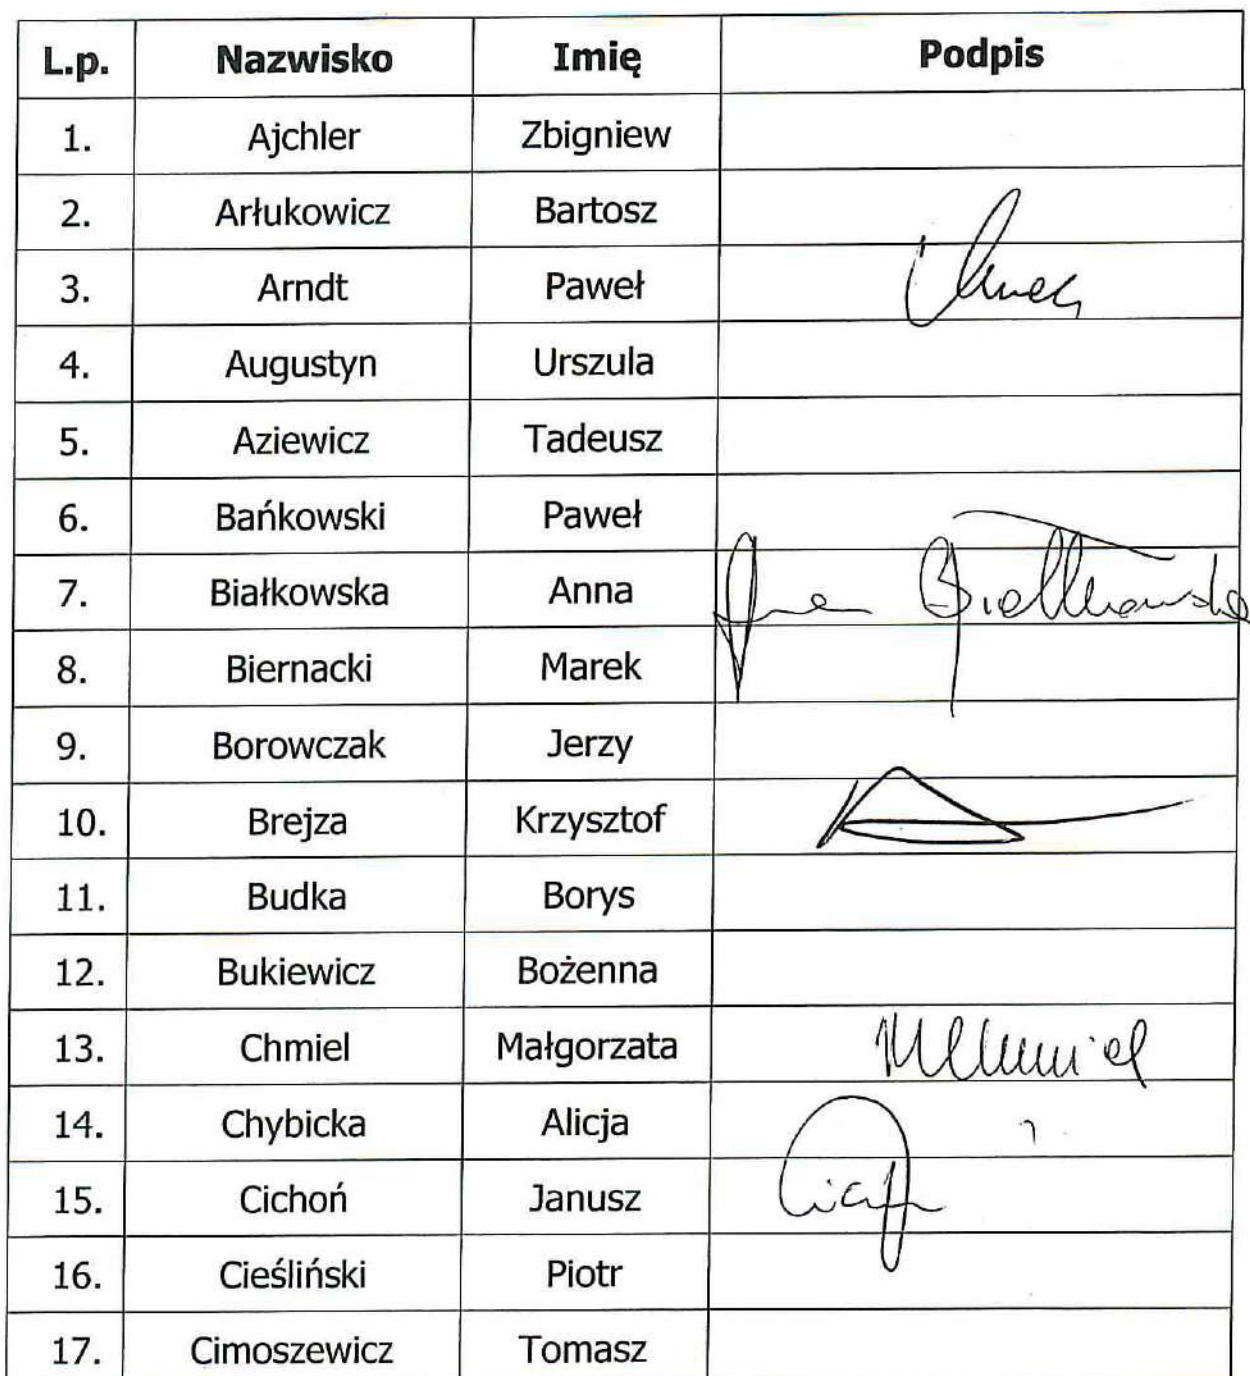 L.p. Nazwisko Imię Podpis
1. Ajchler Zbigniew
2. Arłukowicz Bartosz
3. Arndt Paweł
4. Augustyn Urszula
5. Aziewicz Tadeusz
6. Bańkowski Paweł
7. Białkowska Anna Anna Białkowska
8. Biernacki Marek
9. Borowczak Jerzy
10. Brejza Krzysztof
11. Budka Borys
12. Bukiewicz Bożenna
13. Chmiel Małgorzata MChmiel
14. Chybicka Alicja
15. Cichoń Janusz
16. Cieśliński Piotr
17. Cimoszewicz Tomasz